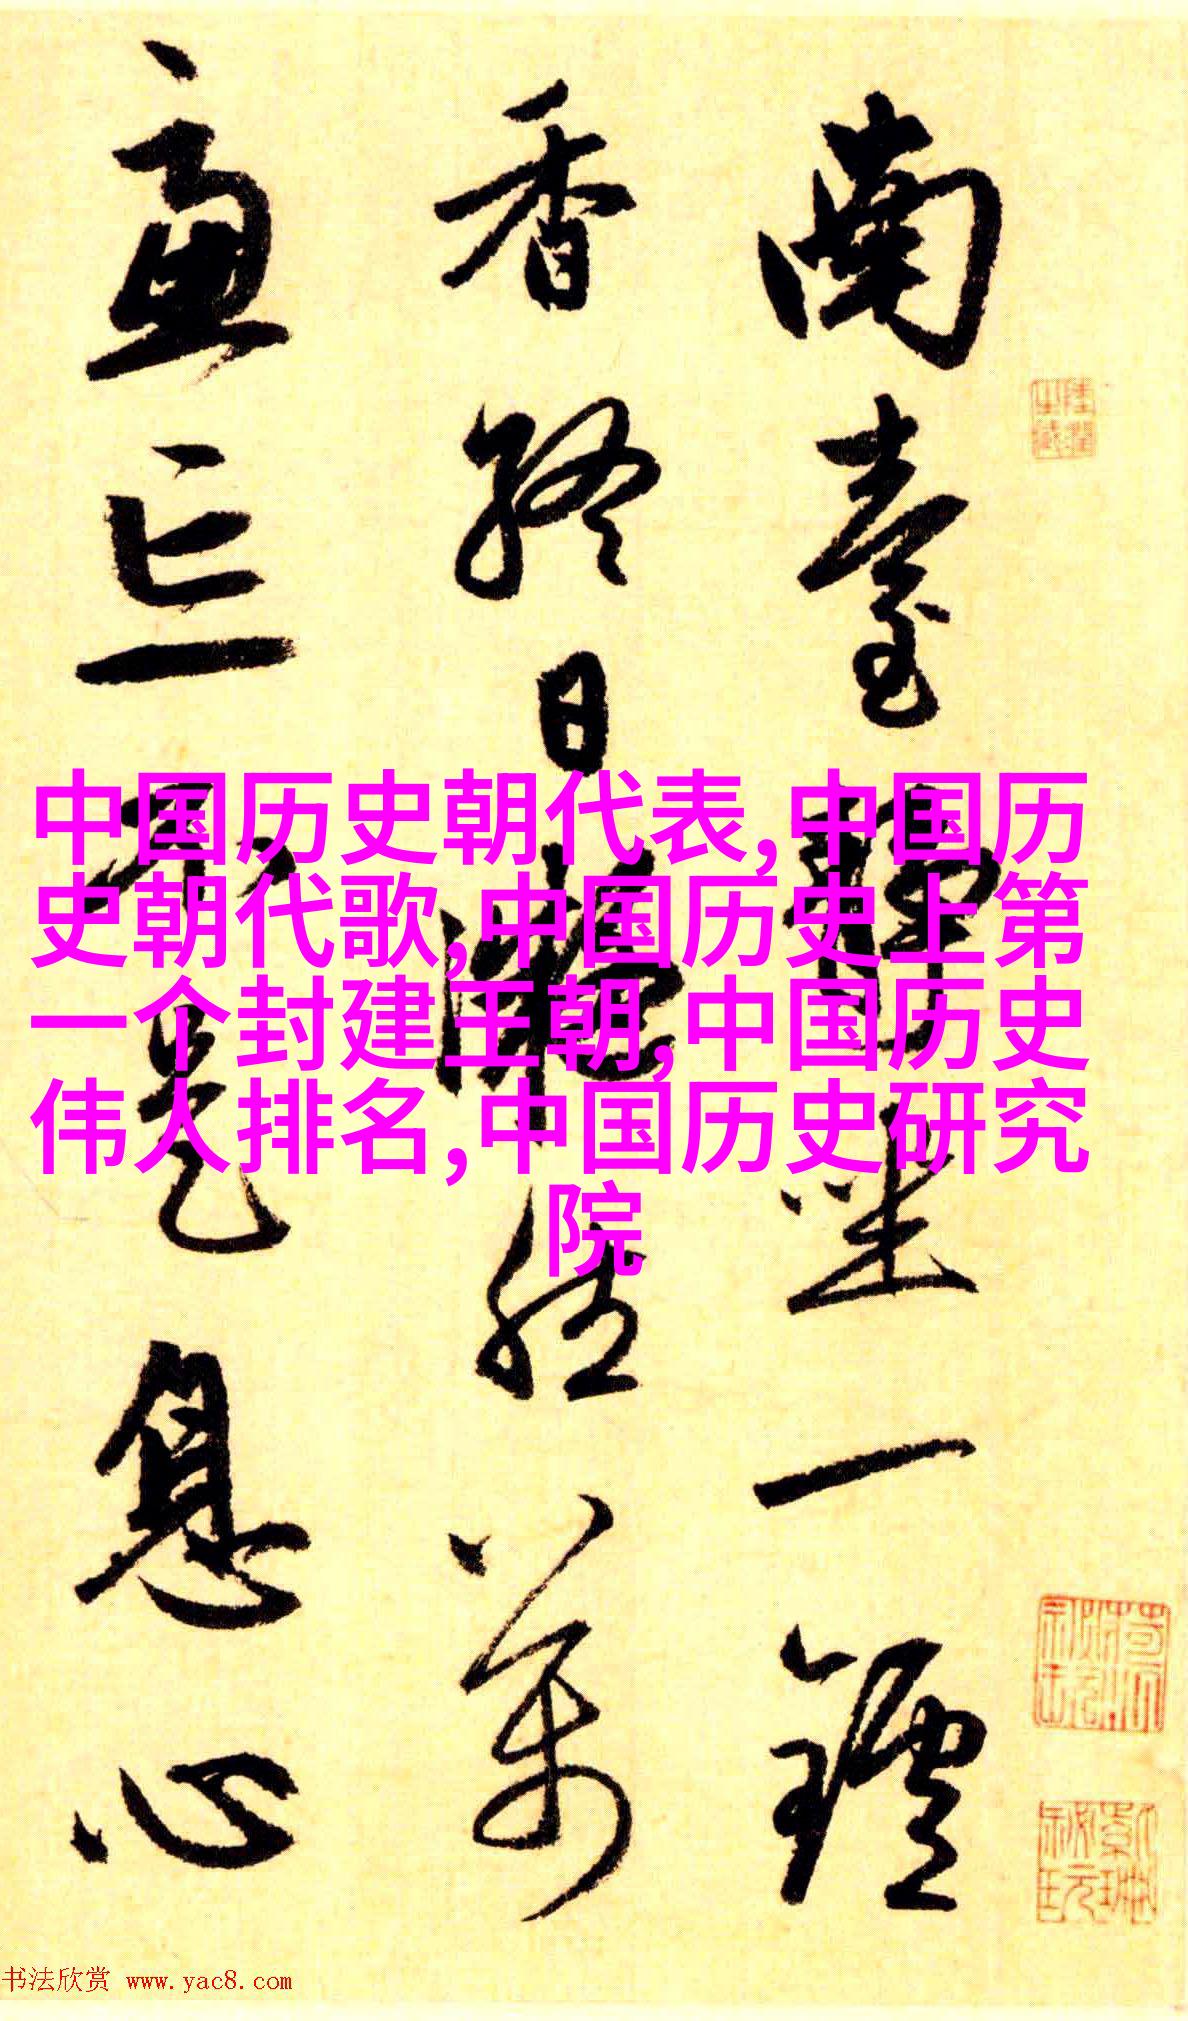 南臺靜坐一鑪
香終日凝然萬
慮忘不是息心
中国历史朝代表,中国历
史朝代歌,中国历史上第
一个封建王朝,中国历史
伟人排名,中国历史研究
院
书法欣赏 www.yac8.com